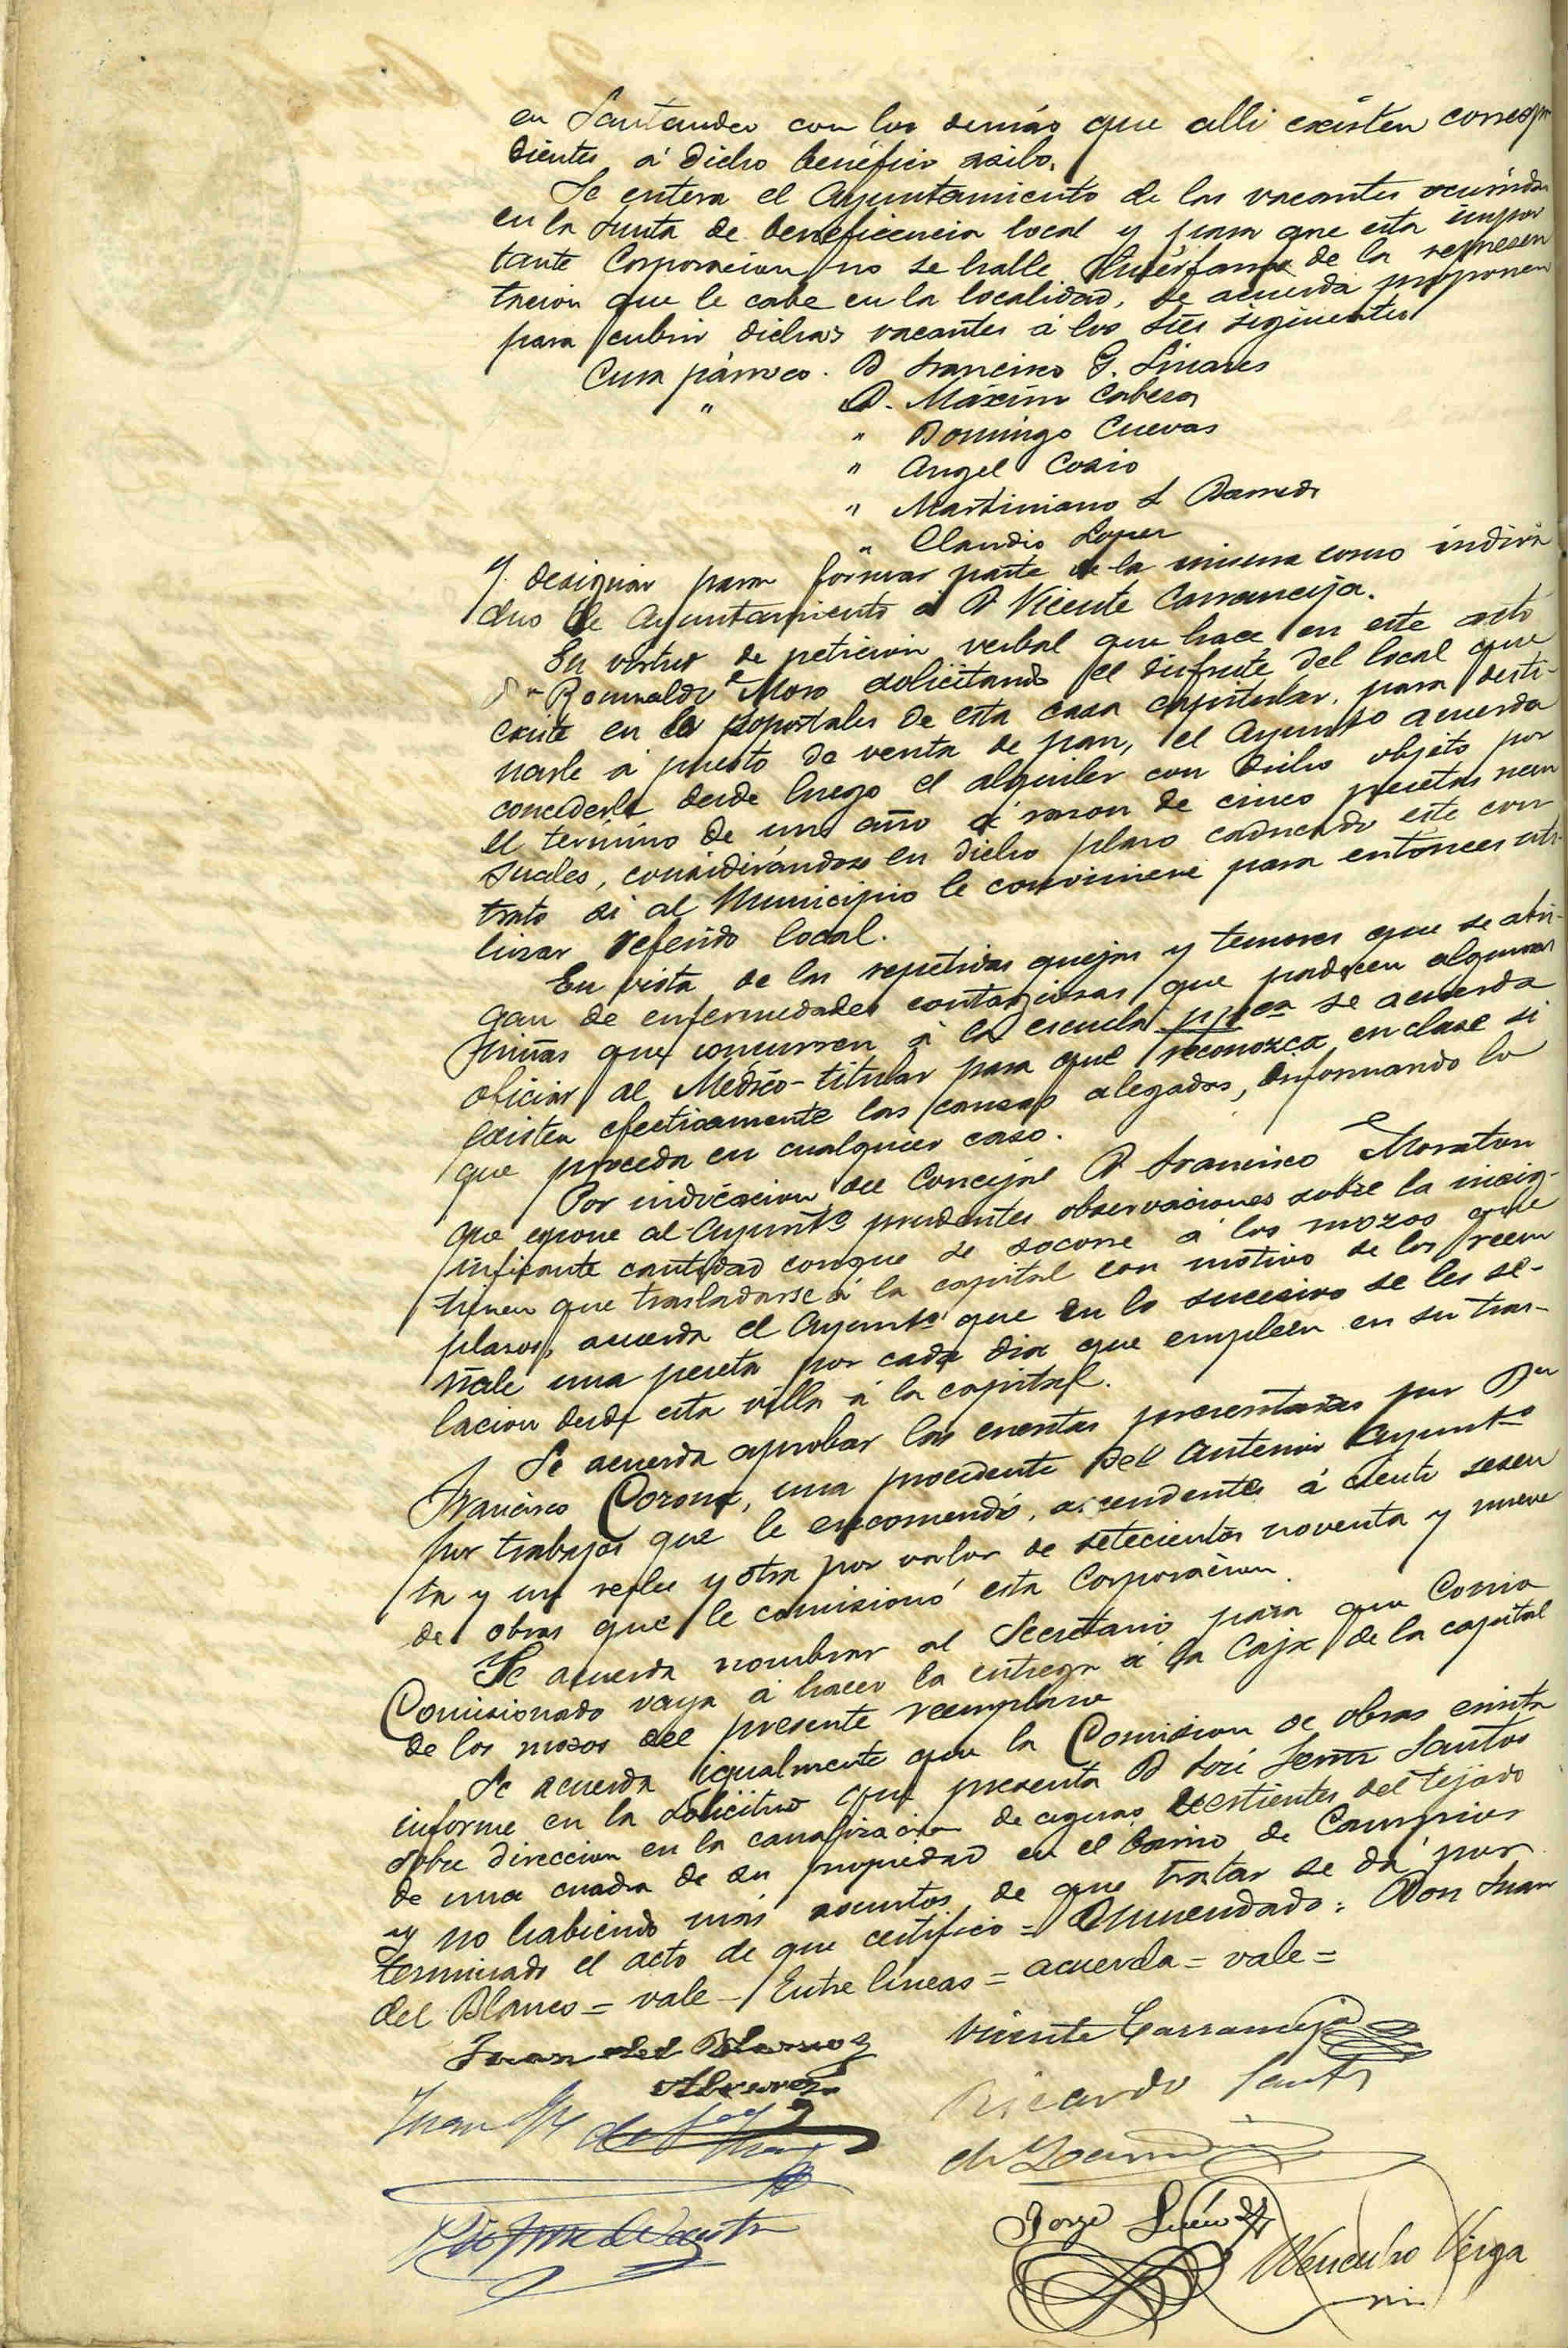 en Santander con los demás que alli existen correspon
dientes á dicho benéfico asilo.
Se entera el Ayuntamiento de las vacantes ocurridas
en la Junta de beneficencia local y para que esta impor
tante Corporacion no se halle huérfana de la represen
tacion que le cabe en la localidad, se acuerda proponer
para cubrir dichas vacantes á los Sres siguientes
Cura párroco. D Francisco G. Linares
" D. Máximo Cabeza
" Domingo Cuevas
" Angel Cosio
" Martiniano S Barreda
" Claudio Lopez
Y designar para formar parte de la misma como indivi
duo de Ayuntamiento á D Vicente Carranceja.
En virtud de peticion verbal que hace en este acto
Dn Romualdo Moro solicitando el disfrute del local que
existe en los soportales de esta casa capitular, para desti-
narle á puesto de venta de pan, el Ayunto acuerda
concederle desde luego el alquiler con dicho objeto por
el termino de un año á razon de cinco pesetas men
suales, considirándose en dicho plazo caducado este con
trato si al Municipio le conviniere para entonces uti-
lizar referido local.
En vista de las repetidas quejas y temores que se abri-
gan de enfermedades contagiosas que padecen algunas
niñas que concurren á la escuela ppca se acuerda
oficiar al Medico-titular para que reconozca en clase si
existen efectivamente las causas alegadas, informando lo
que proceda en cualquier caso.
Por indicacion del Concejal D Francisco Moraton
que expone al Ayunto prudentes observaciones sobre la insig-
nificante cantidad conque se socorre á los mozos que
tienen que trasladarse á la capital con motivo de los reem
plazos, acuerda el Ayunto que en lo sucesivo se les se-
ñale una peseta por cada dia que empleen en su tras-
lacion desde esta villa á la capital.
Se acuerda aprobar las cuentas presentadas por Dn
Francisco Corona, una procedente del anterior Ayunto
por trabajos que le encomendó, ascendente á ciento sesen
ta y un reales y otra por valor de setecientos noventa y nueve
de obras que le comisionó esta Corporacion.
Se acuerda nombrar al Secretario para que Como
Comisionado vaya á hacer la entrega á la Caja de la capital
de los mozos del presente reemplazo
Se acuerda igualmente que la Comision de obras emita
informe en la solicitud que presenta D José Santos
sobre direccion en la canalizacion de aguas vertientes del tejado
de una cuadra de su propiedad en el barrio de Campios
y no habiendo más asuntos de que tratar se dá por
terminado el acto de que certifico = Enmendado: Don Juan
del Blanco = vale - Entre lineas = acuerda = vale =
Juan del Blanco Vicente Carranceja
Alvarez
Juan de Ricardo Santos
de
Jorge
Wenceslao Veiga